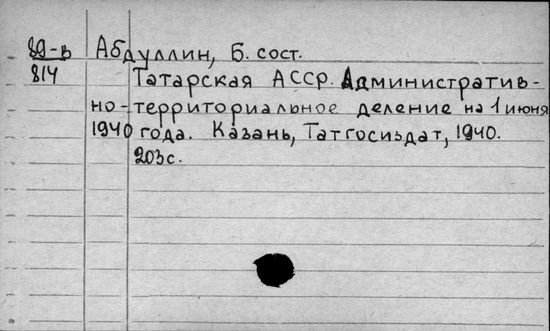 89-в Абдуллин, Б. сост.
814 Татарская АССР. Административ-
но-территориальное деление на 1 июня
1940 года. Казань, Татгосиздат, 1940.
203с.